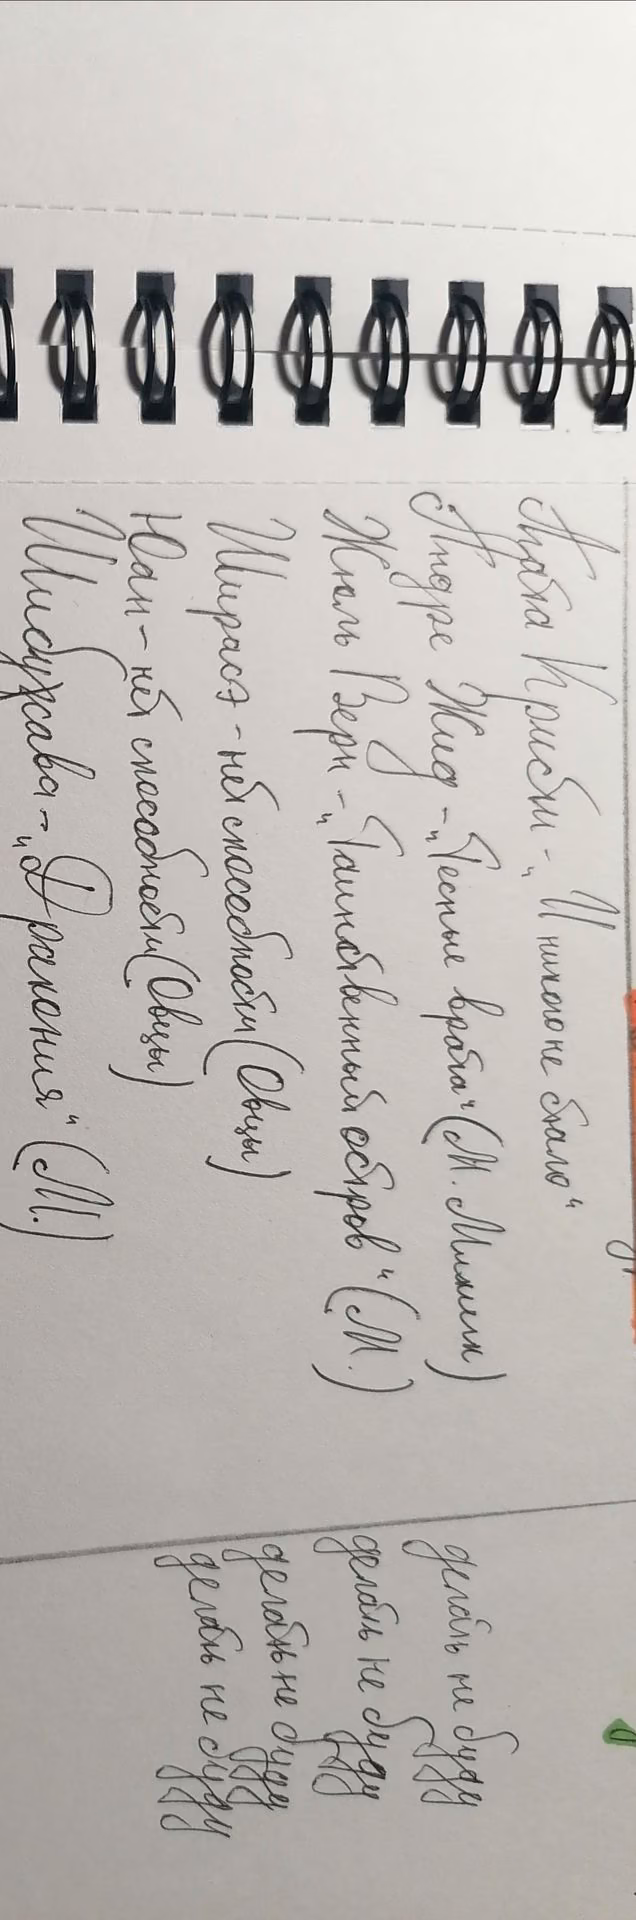 Агата Кристи - „И никого не стало“
Андре Жид - „Тесные врата“ (М. Мимик) делать не буду
Жюль Верн - „Таинственный остров“ (М.) делать не буду
Ширасэ - нет способности (Овцы) делать не буду
Юан - нет способности (Овцы) делать не буду
Шибусава - „Дракония“ (М.)